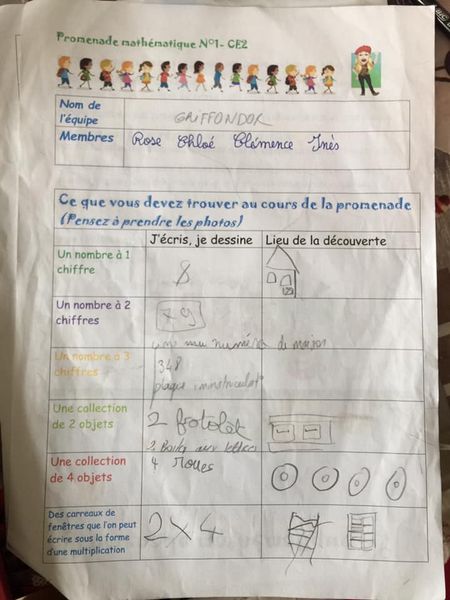 Promenade mathématique N°1- CE2
Nom de l'équipe GRIFFONDOR
Membres Rose Chloé Clémence Inès
Ce que vous devez trouver au cours de la promenade
(Pensez à prendre les photos)
J'écris, je dessine Lieu de la découverte
Un nombre à 1 chiffre 8
Un nombre à 2 chiffres 79
numéro de maison
Un nombre à 3 chiffres 348
plaque
Une collection de 2 objets 2
2 Boite aux lettres
Une collection de 4 objets 4 roues
Des carreaux de fenêtres que l'on peut écrire sous la forme d'une multiplication 2 x 4